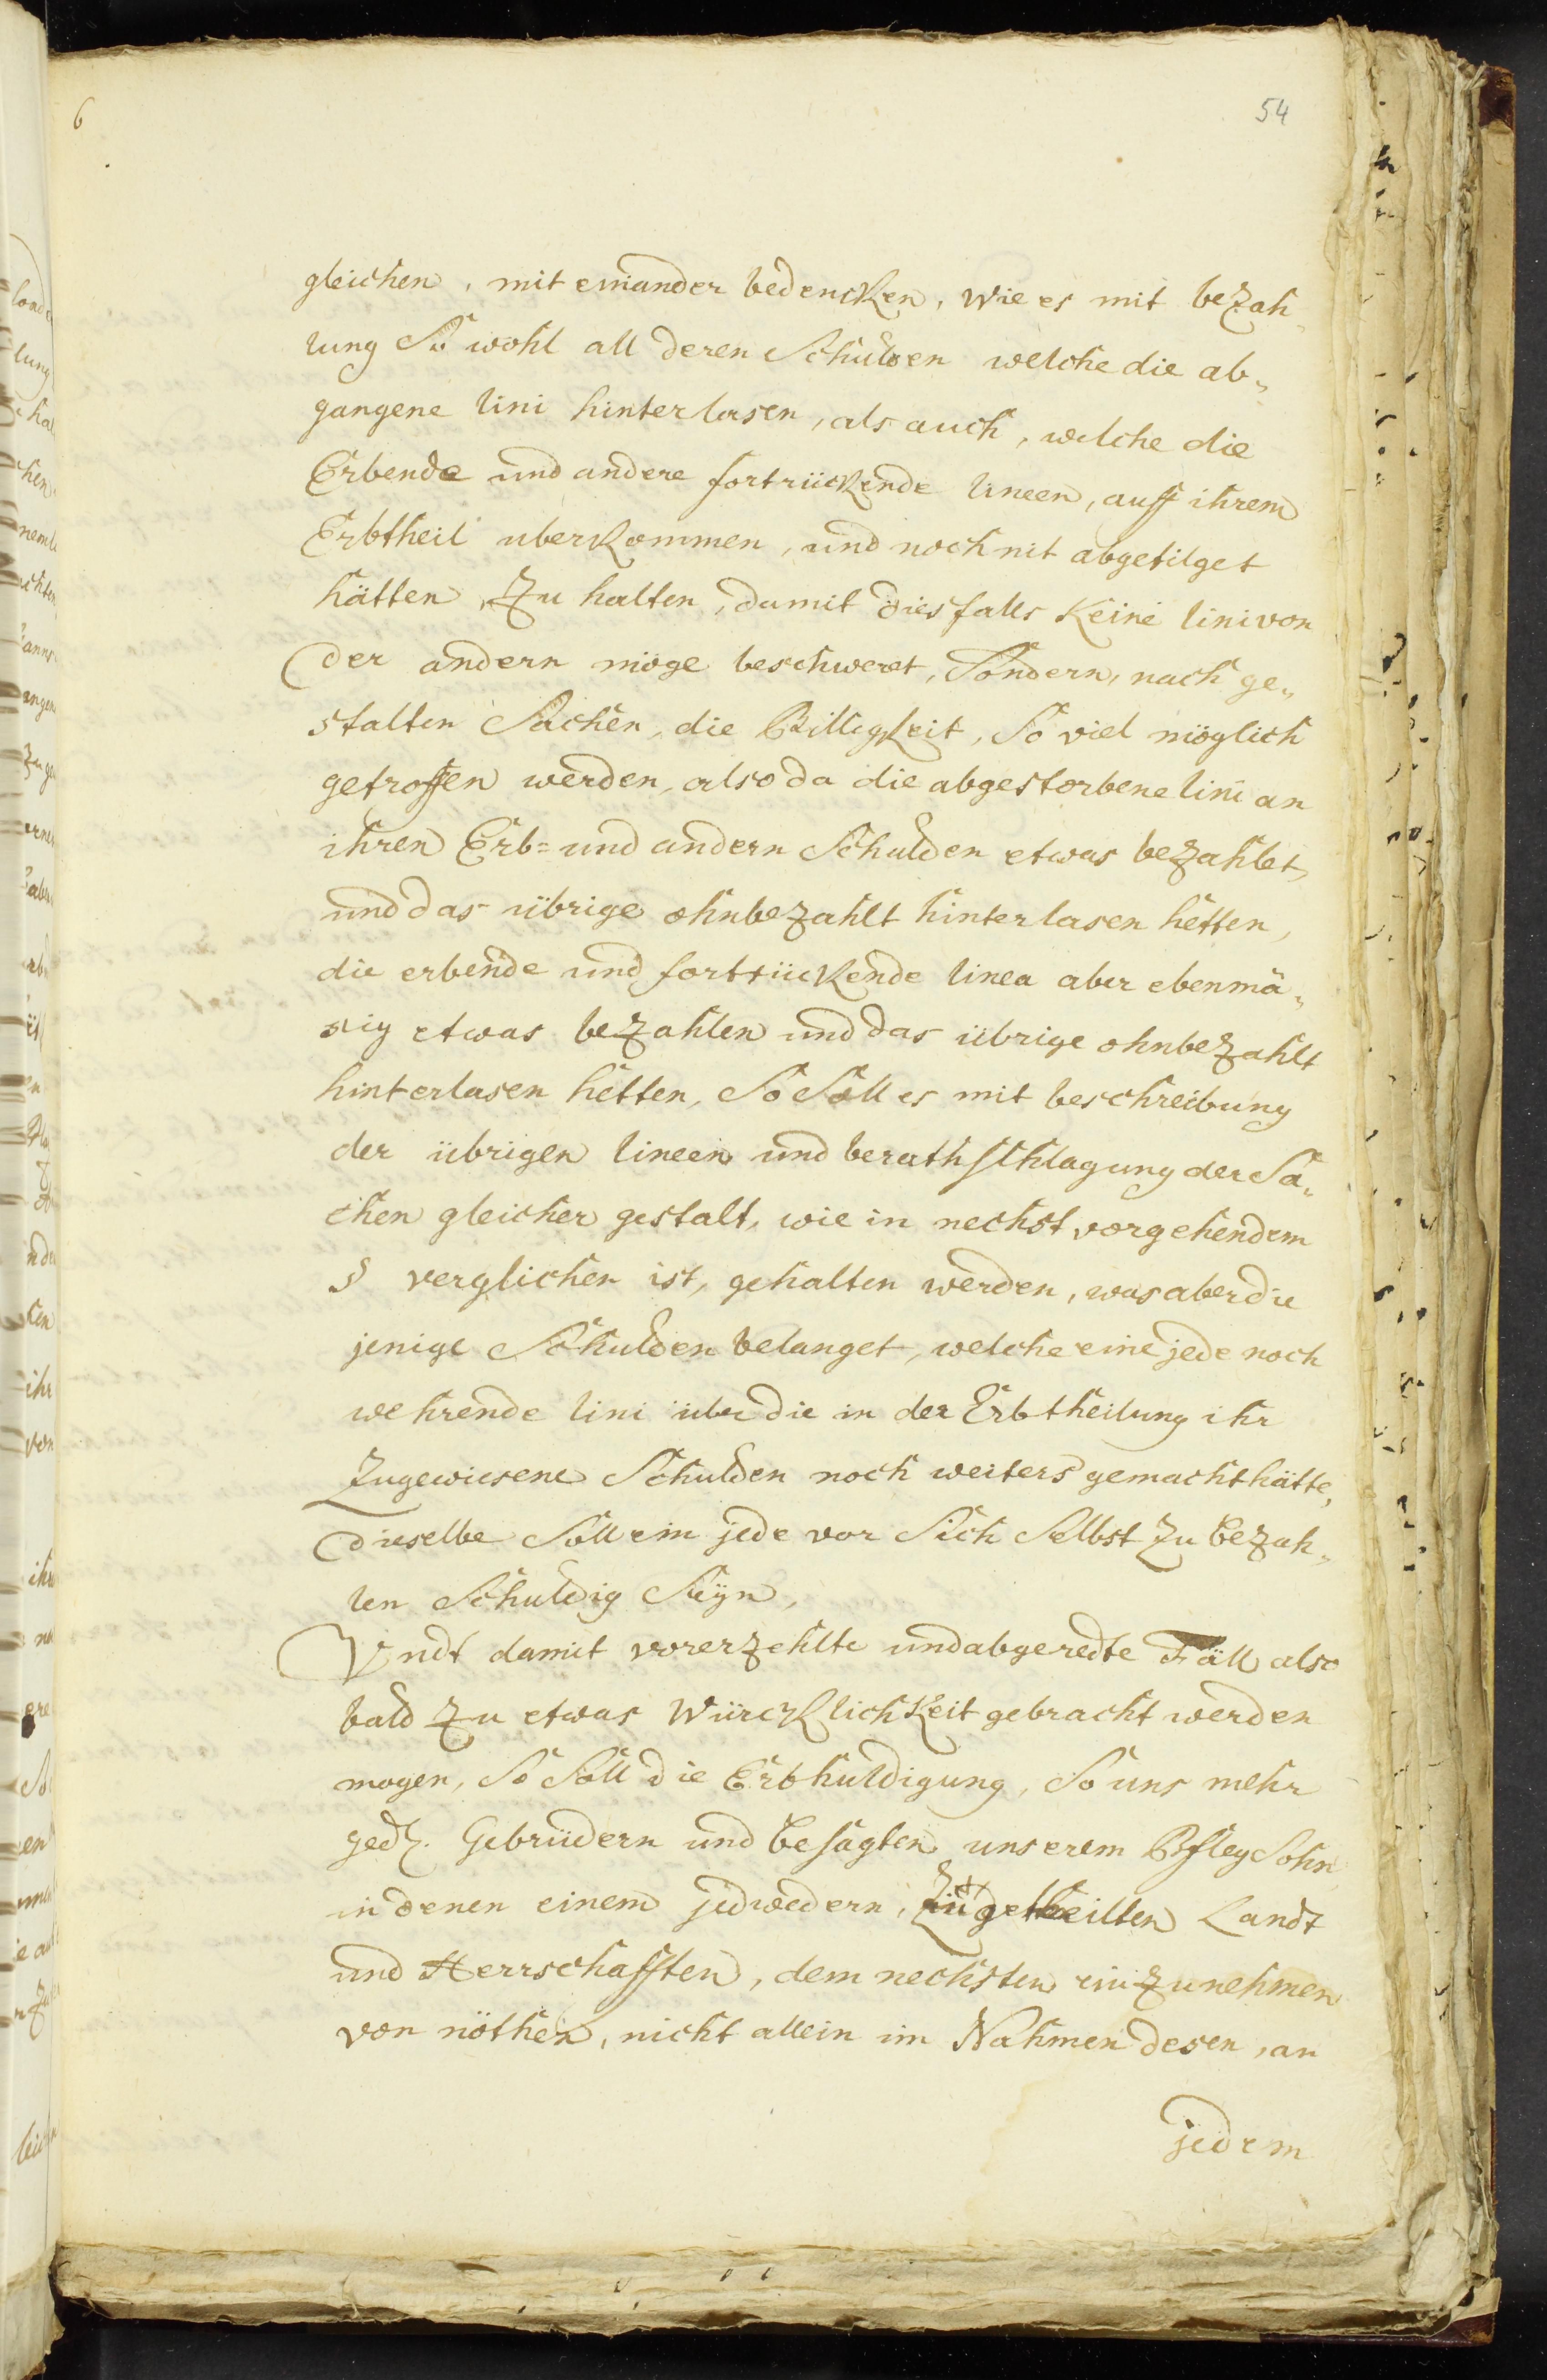 6
54
gleichen, mit einander bedencken, wie es mit bezah„
lung So wohl all deren Schulden welche die ab„
gangene lini hinterlasen, als auch, welche die
Erbende und andere fortrückende lineen, auff ihrem
Erbtheil uberkommen, und noch nit abgetilget
hätten, Zu halten, damit diesfalls Keine lini von
der andern möge beschweret, Sondern, nach ge„
stalten Sachen, die Billigkeit, So viel möglich
getroffen werden, also da die abgestorbene lini an
ihren Erb= und andern Schulden etwas bezahlet,
und das übrige ohnbezahlt hinterlasen hetten,
die erbende und fortrückende linea aber ebenmä„
sig etwas bezahlen und das übrige ohnbezahlt
hinterlasen hetten, So Soll es mit beschreibung
der übrigen lineen und berathschlagung der Sa„
chen gleicher gestalt, wie in nechst vorgehendem
§ verglichen ist, gehalten werden, was aber die
jenige Schulden belanget, welche eine jede noch
wehrende lini über die in der Erbtheilung ihr
Zugewiesene Schulden noch weiters gemacht hätte,
dieselbe Soll ein jede vor Sich Selbst Zu bezah„
len Schuldig Seyn,
Undt damit vorerzehlte und abgeredte Fäll also
bald Zu etwas Würcklichkeit gebracht werden
mogen, So Soll die Erbhuldigung, So uns mehr
gedh. Gebrüdern und besagten unserem Pfleg Sohn
in denen einem jedwedern, Zugetheilten Landt
und Herrschafften, dem nechsten einzunehmen
von nöthen, nicht allein im Nahmen desen, an
jedem